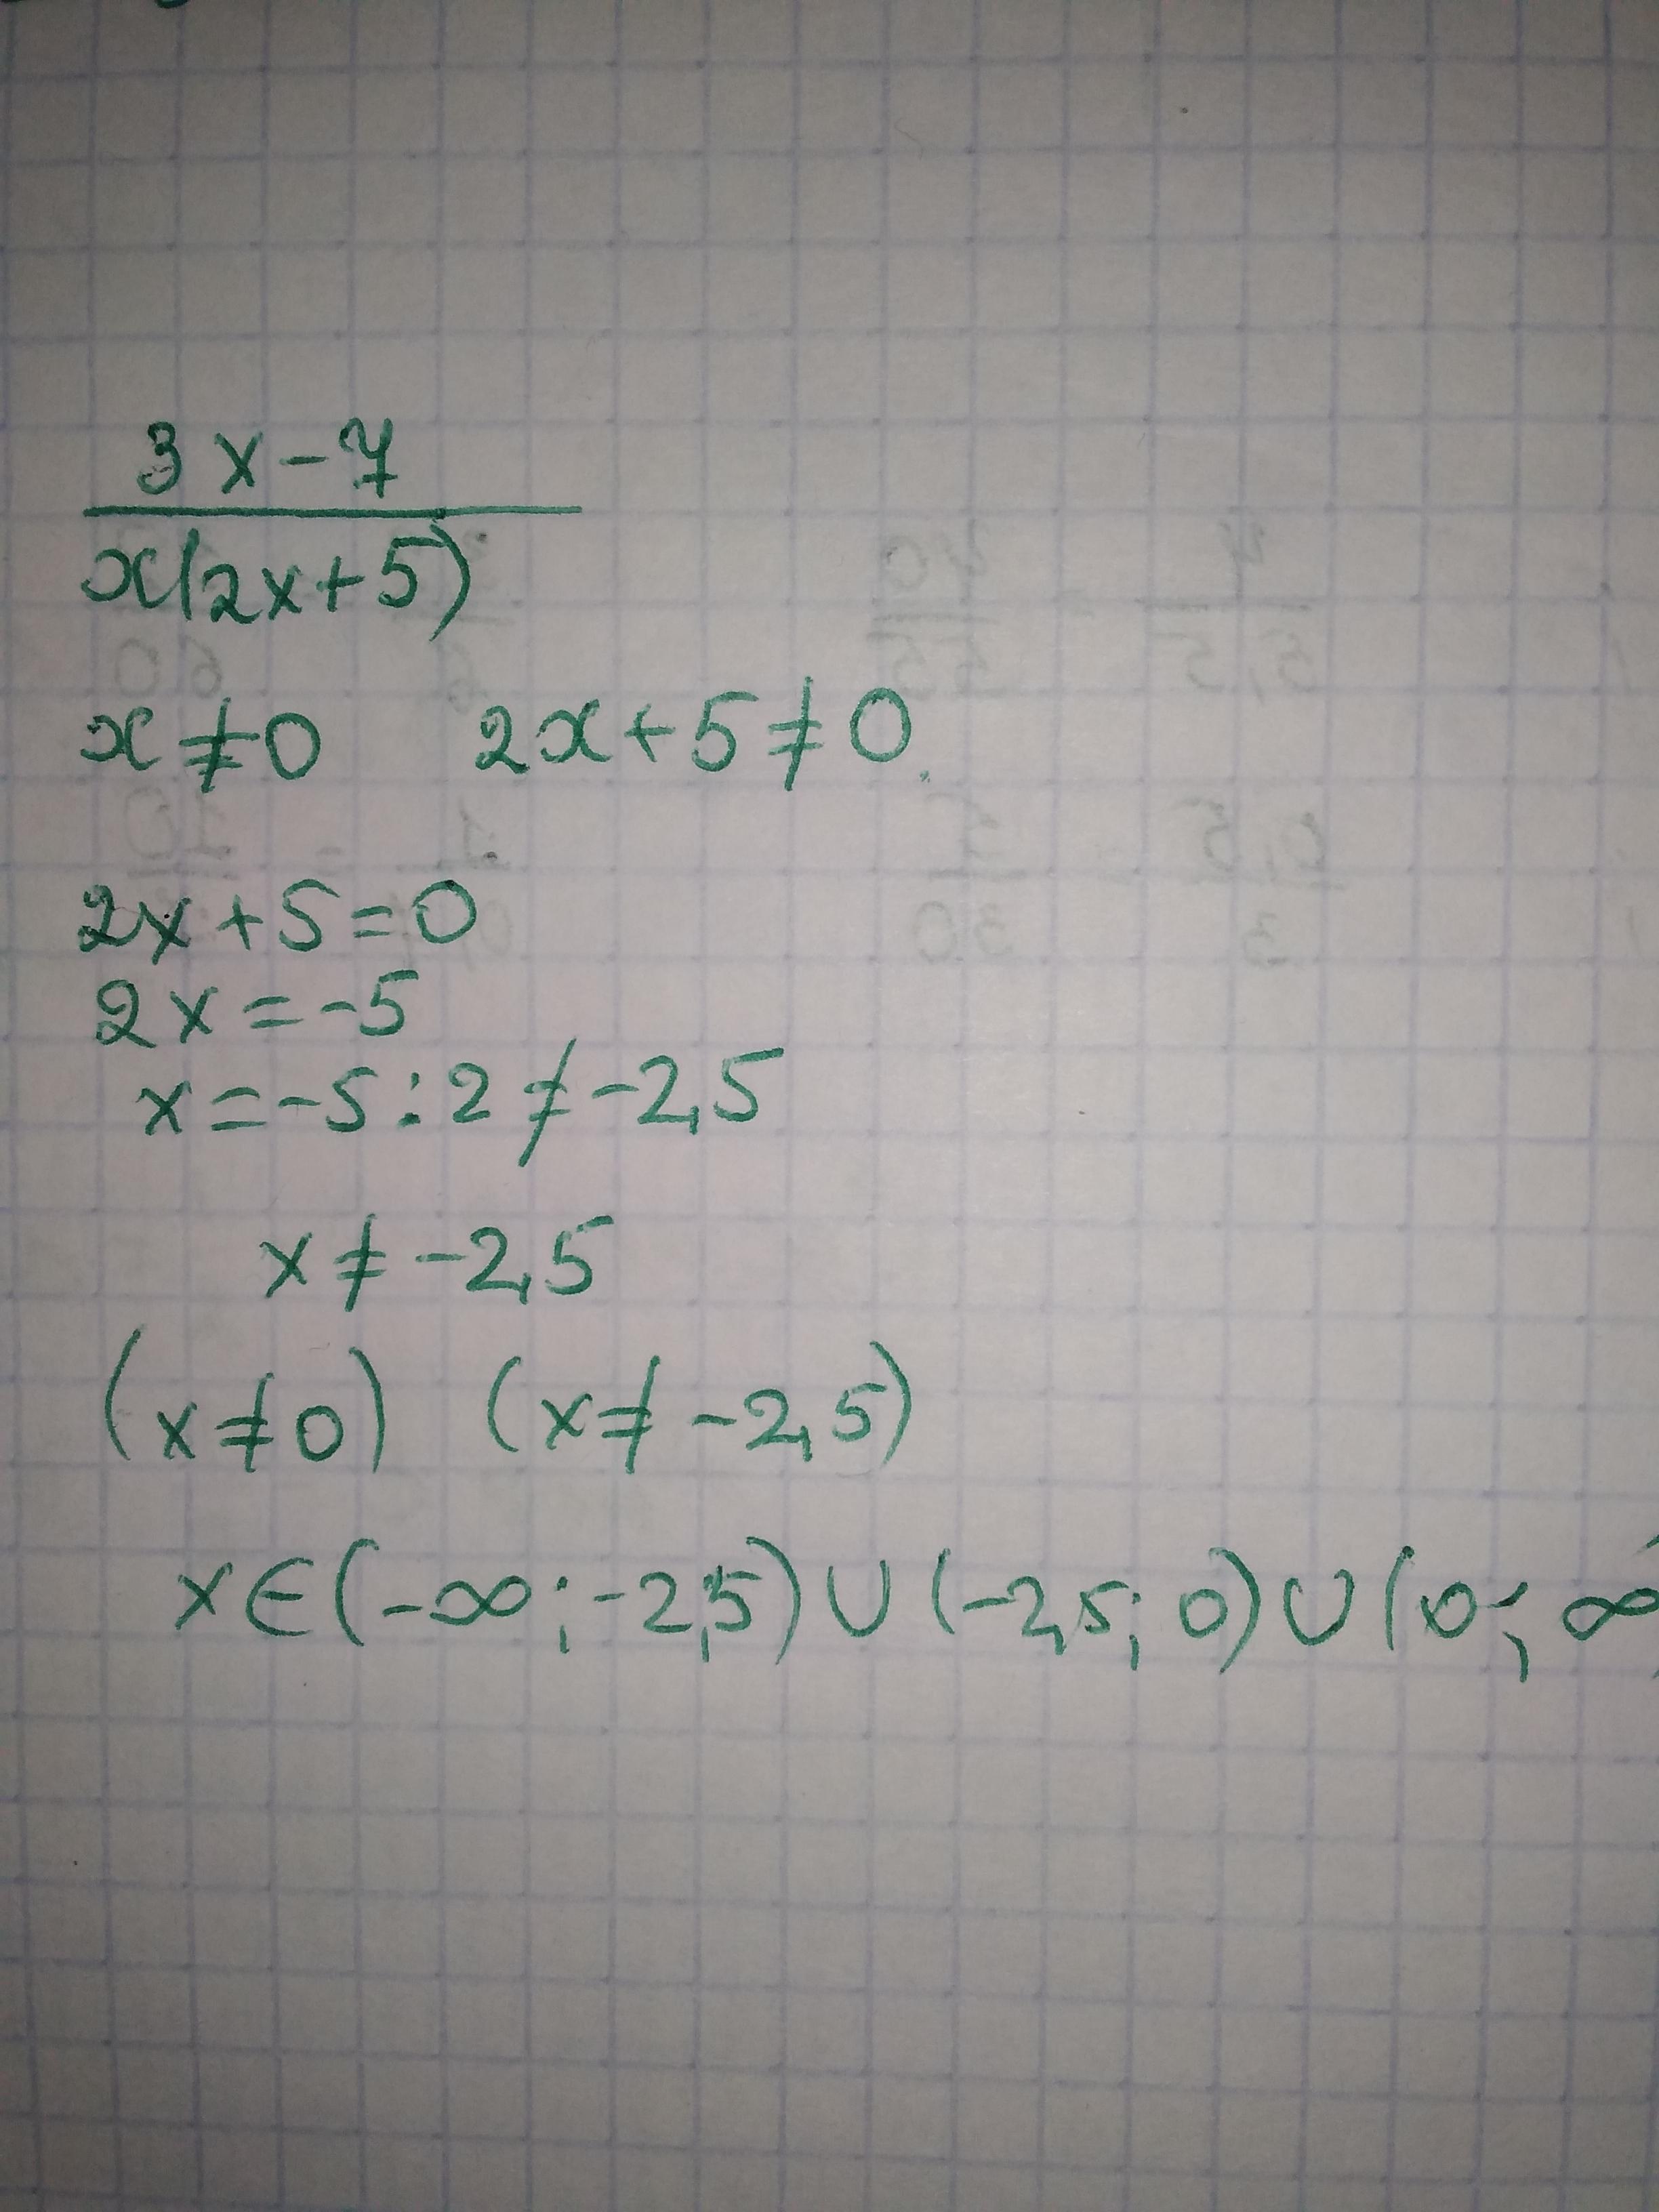 3x-7
x(2x+5)
x≠0 2x+5≠0
2x+5=0
2x=-5
x=-5:2≠-2,5
x≠-2,5
(x≠0) (x≠-2,5)
x∈(-∞;-2,5)∪(-2,5;0)∪(0;∞)